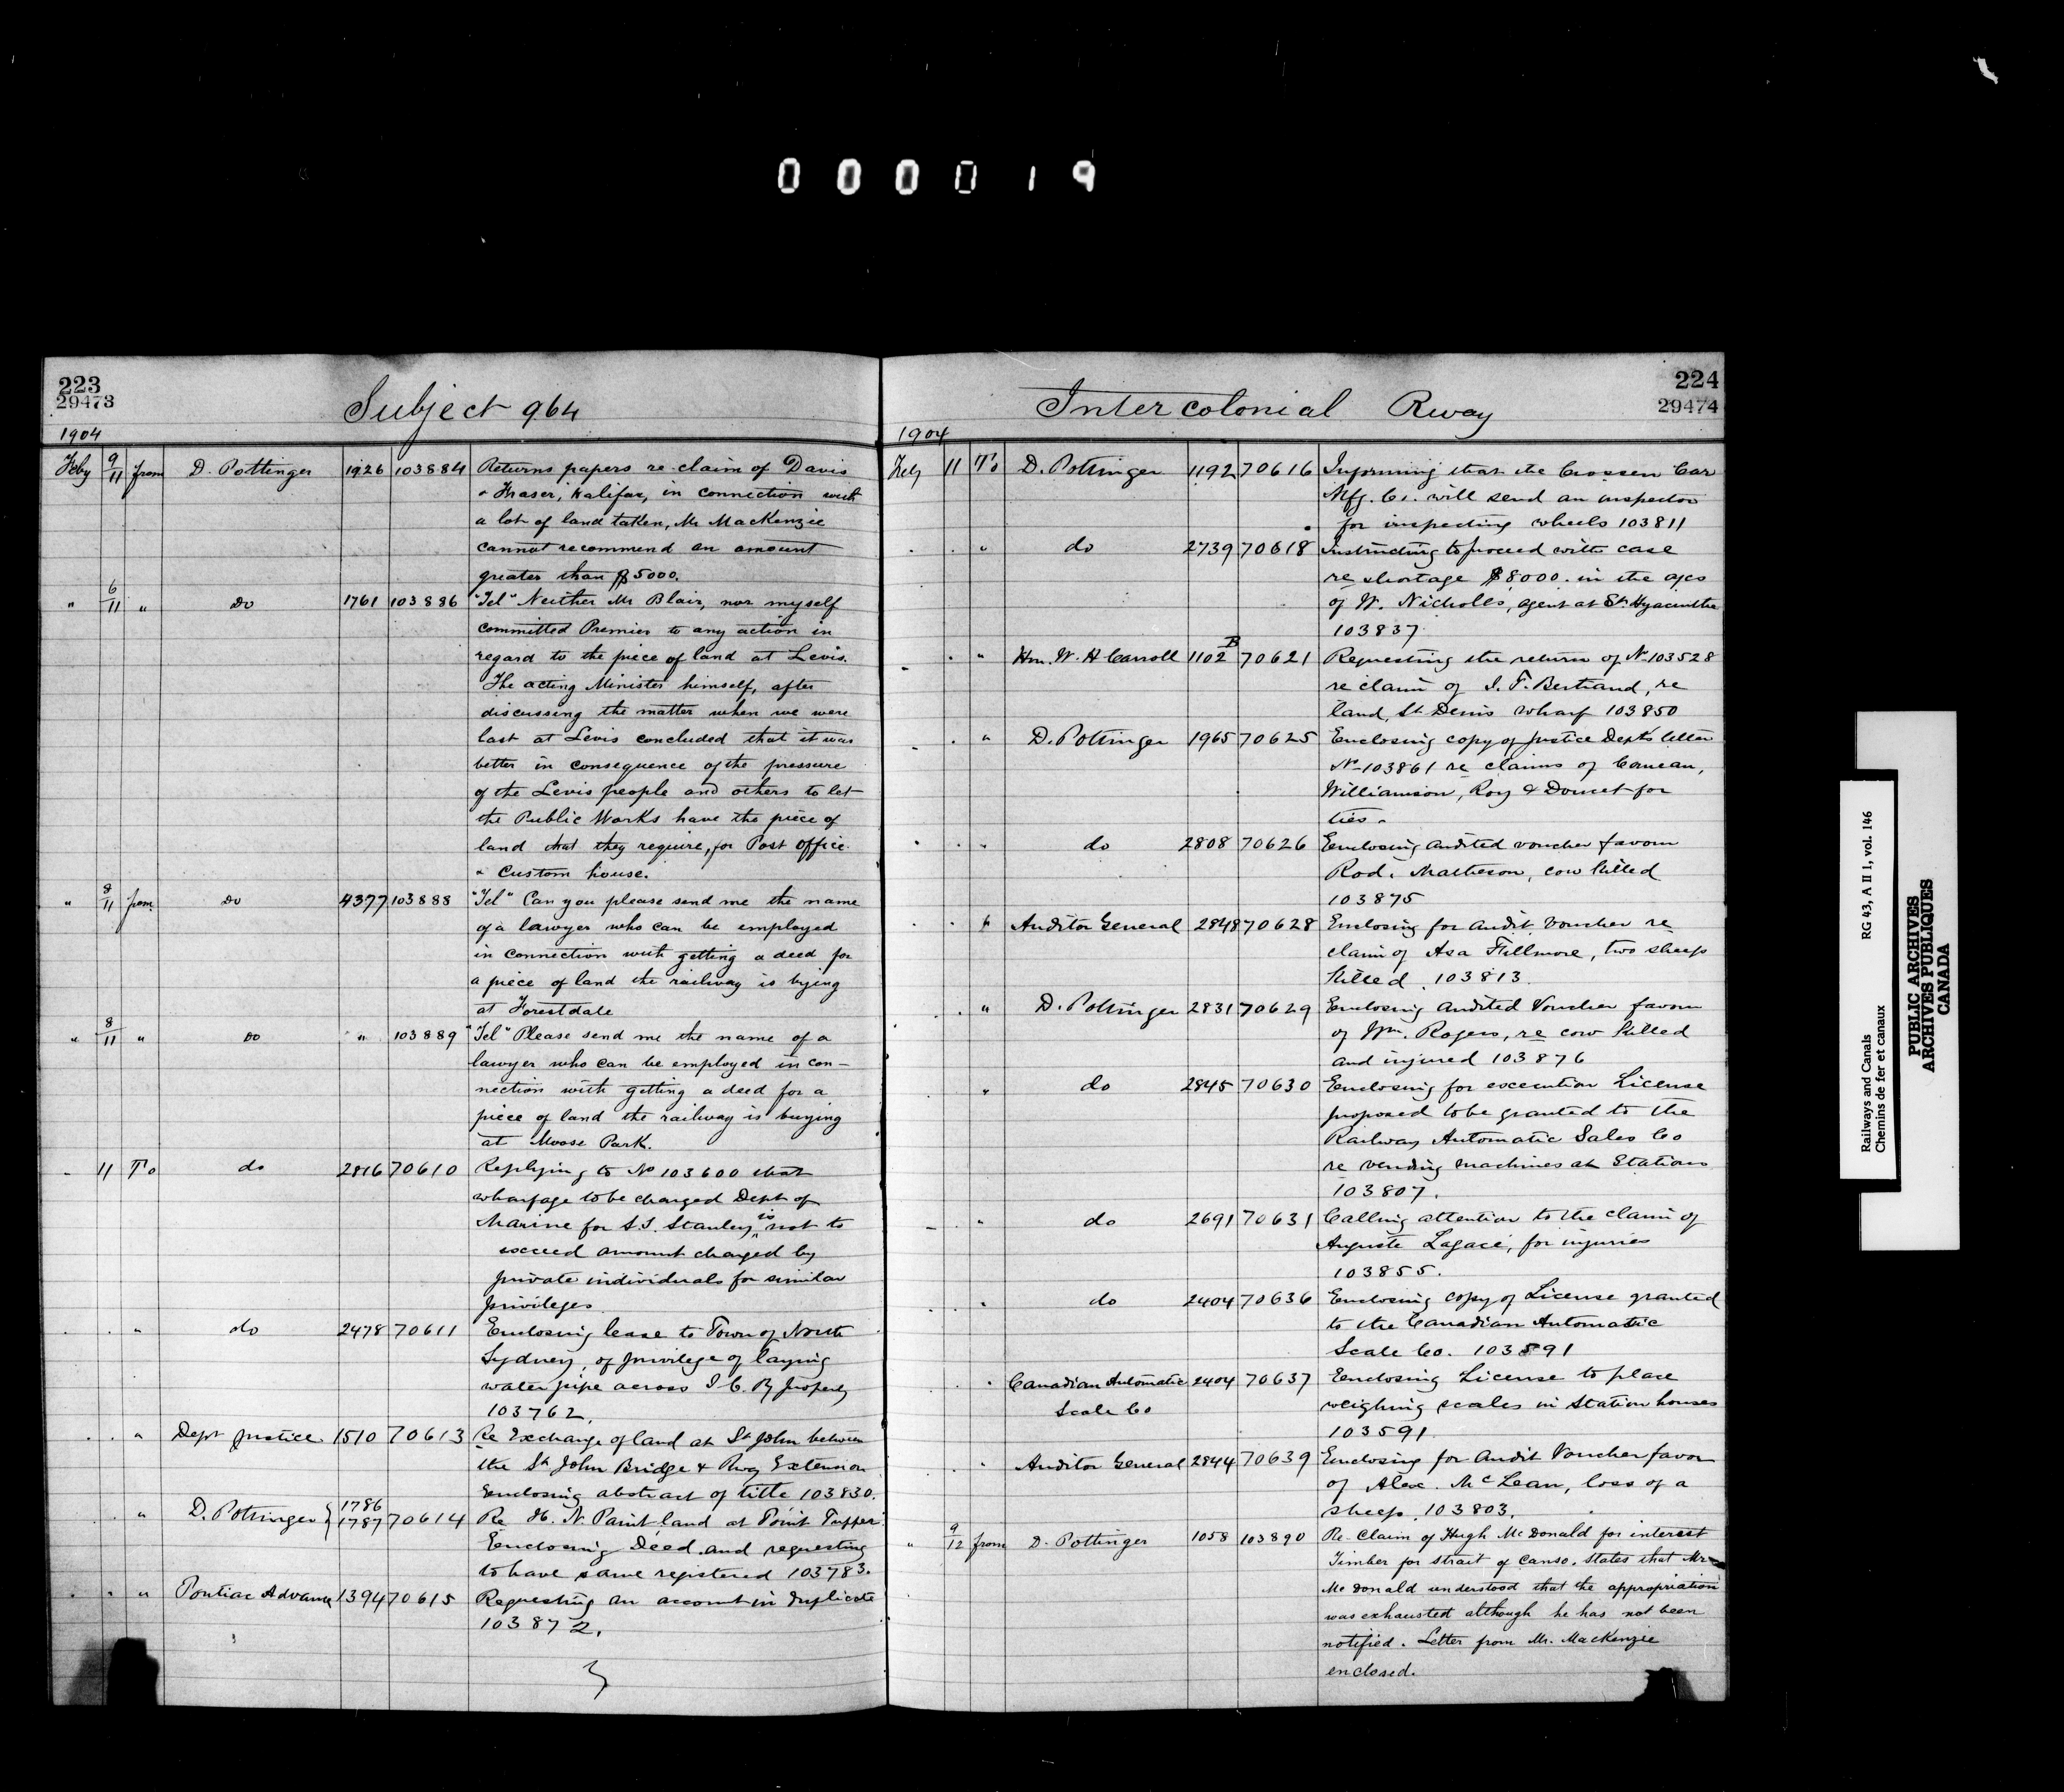 000019
223
29473
Subject 964
1904
Feby 9/11 from D. Pottinger 1926 103884 Returns papers re claim of Davis
& Fraser, Halifax, in connection with
a lot of land taken, Mr MacKenzie
cannot recommend an amount
greater than $5000.
" 6/11 " Do 1761 103886 "Tel" Neither Mr Blair, nor myself
committed Premier to any action in
regard to the piece of land at Levis.
The acting Minister himself, after
discussing the matter when we were
last at Levis concluded that it was
better in consequence of the pressure
of the Levis people and others to let
the Public Works have the piece of
land that they require, for Post office
& Custom house.
" 8/11 from Do 4377 103888 "Tel" Can you please send me the name
of a lawyer who can be employed
in connection with getting a deed for
a piece of land the railway is bying
at Forestdale
" 8/11 " Do " 103889 "Tel" Please send me the name of a
lawyer who can be employed in con-
nection with getting a deed for a
piece of land the railway is buying
at Moose Park.
" 11 To do 2816 70610 Replying to No 103600 that
wharfage to be charged Dept of
Marine for S.S. Stanley, is not to
exceed amount charged by
private individuals for similar
privileges
" " " do 2478 70611 Enclosing lease to Town of North
Sydney, of privilege of laying
water pipe across I.C.Ry property
103762.
" " " Dept Justice 1510 70613 Re Exchange of land at St John between
the St John Bridge & Rwy Extension
Enclosing abstract of title 103830.
" " D. Pottinger } 1786 1787 70614 Re H. N. Paint land at Point Tupper
Enclosing Deed and requesting
to have same registered 103783.
" " " Pontiac Advance 1394 70615 Requesting an account in duplicate
103872.
224
29474
Intercolonial Rway
1904
Feby 11 To D. Pottinger 1192 70616 Informing that the Crossen Car
Mfg. Co. will send an inspector
for inspecting wheels 103811
" " " do 2739 70618 Instructing to proceed with case
re shortage $8000. in the a/cs
of W. Nicholls, agent at St. Hyacinthe
103837
" " " Hon. W. H Carroll 1102B 70621 Requesting the return of No 103528
re claim of J. T. Bertrand, re
land, St Denis wharf 103850
" " " D. Pottinger 1965 70625 Enclosing copy of Justice Depts letter
No 103861 re claims of Comeau,
Williamson, Roy & Doucet for
ties.
" " " do 2808 70626 Enclosing audited voucher favour
Rod. Matheson, cow killed
103875
" " " Auditor General 2848 70628 Enclosing for audit, voucher re
claim of Asa Fillmore, two sheep
killed. 103813.
" " D. Pottinger 2831 70629 Enclosing audited voucher favour
of Wm. Rogers, re cow killed
and injured 103876
" do 2845 70630 Enclosing for execution License
proposed to be granted to the
Railway Automatic Sales Co
re vending machines at Stations
103807.
" " do 2691 70631 Calling attention to the claim of
Auguste Lagacé, for injuries
103855.
" " do 2404 70636 Enclosing copy of License granted
to the Canadian Automatic
Scale Co. 103591
" " Canadian Automatic 2404 70637 Enclosing License to place
Scale Co weighing scales in Station houses
103591
" " Auditor General 2844 70639 Enclosing for audit Voucher favor
of Alex. McLean, loss of a
sheep. 103803.
" 9/12 from D. Pottinger 1058 103890 Re Claim of Hugh McDonald for interest
Timber for strait of Canso. States that Mr
McDonald understood that the appropriation
was exhausted although he has not been
notified. Letter from Mr. MacKenzie
enclosed.
Railways and Canals RG 43, A II 1, vol. 146
Chemins de fer et canaux
PUBLIC ARCHIVES
ARCHIVES PUBLIQUES
CANADA